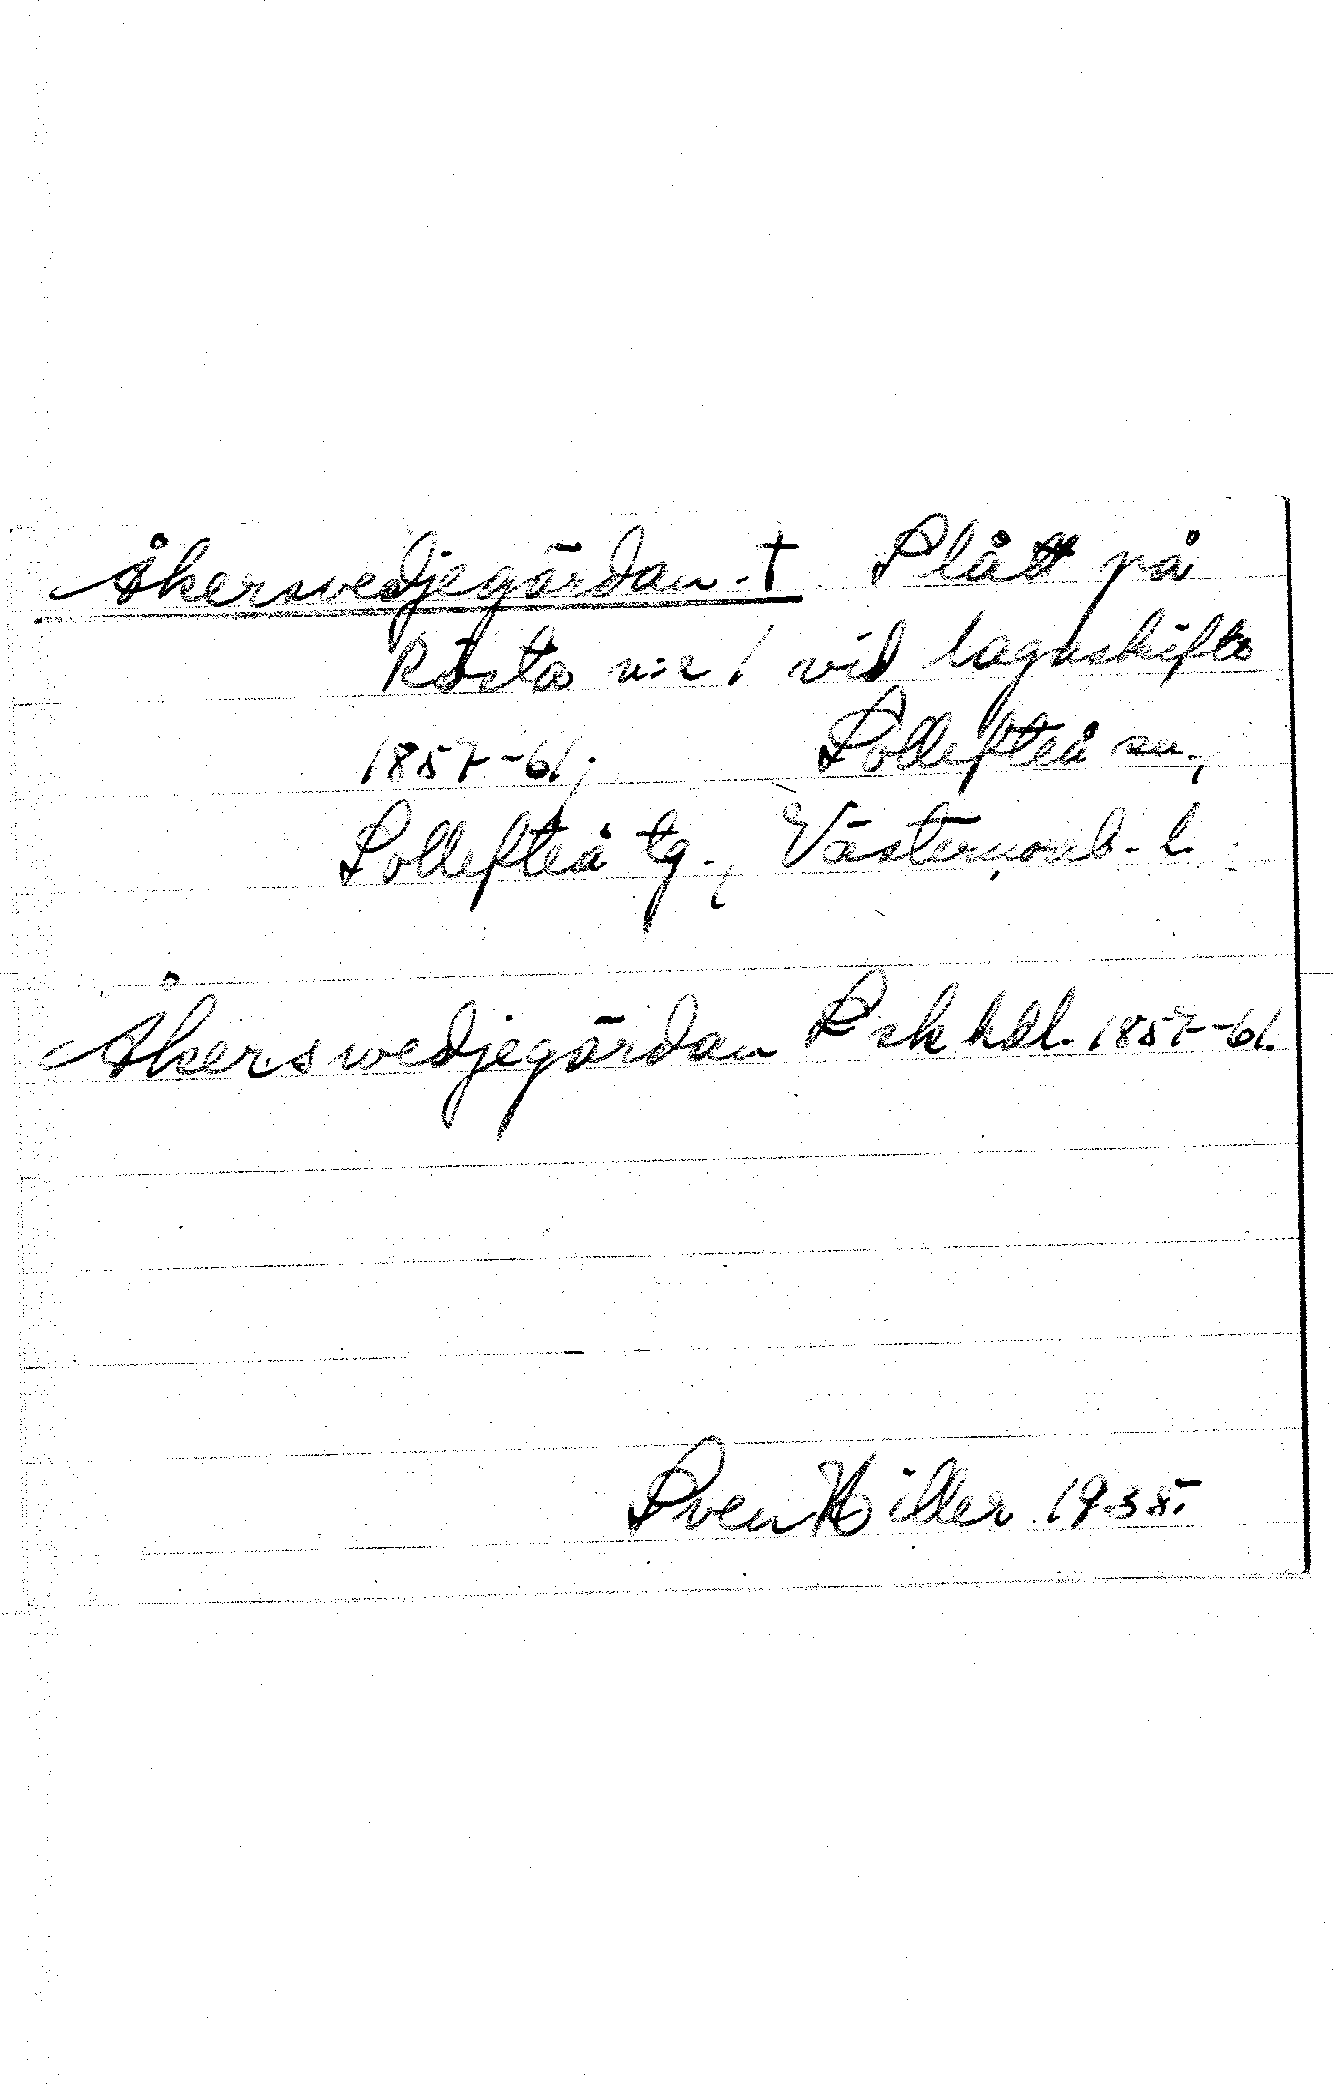 Åkerswedjegärdan. † Slått på
Rösta n:r 1 vid lagaskifte
1857-61; Sollefteå sn.,
Sollefteå tg., Västernorrl. l.
Åkerswedjegärdan Lskhdl. 1857-61.
Sven Hiller 1935.